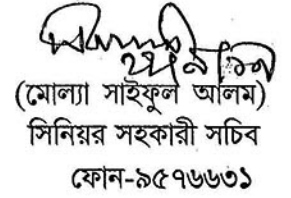 (মোল্যা সাইফুল আলম)
সিনিয়র সহকারী সচিব
ফোন-৯৫৭৬৬৩১